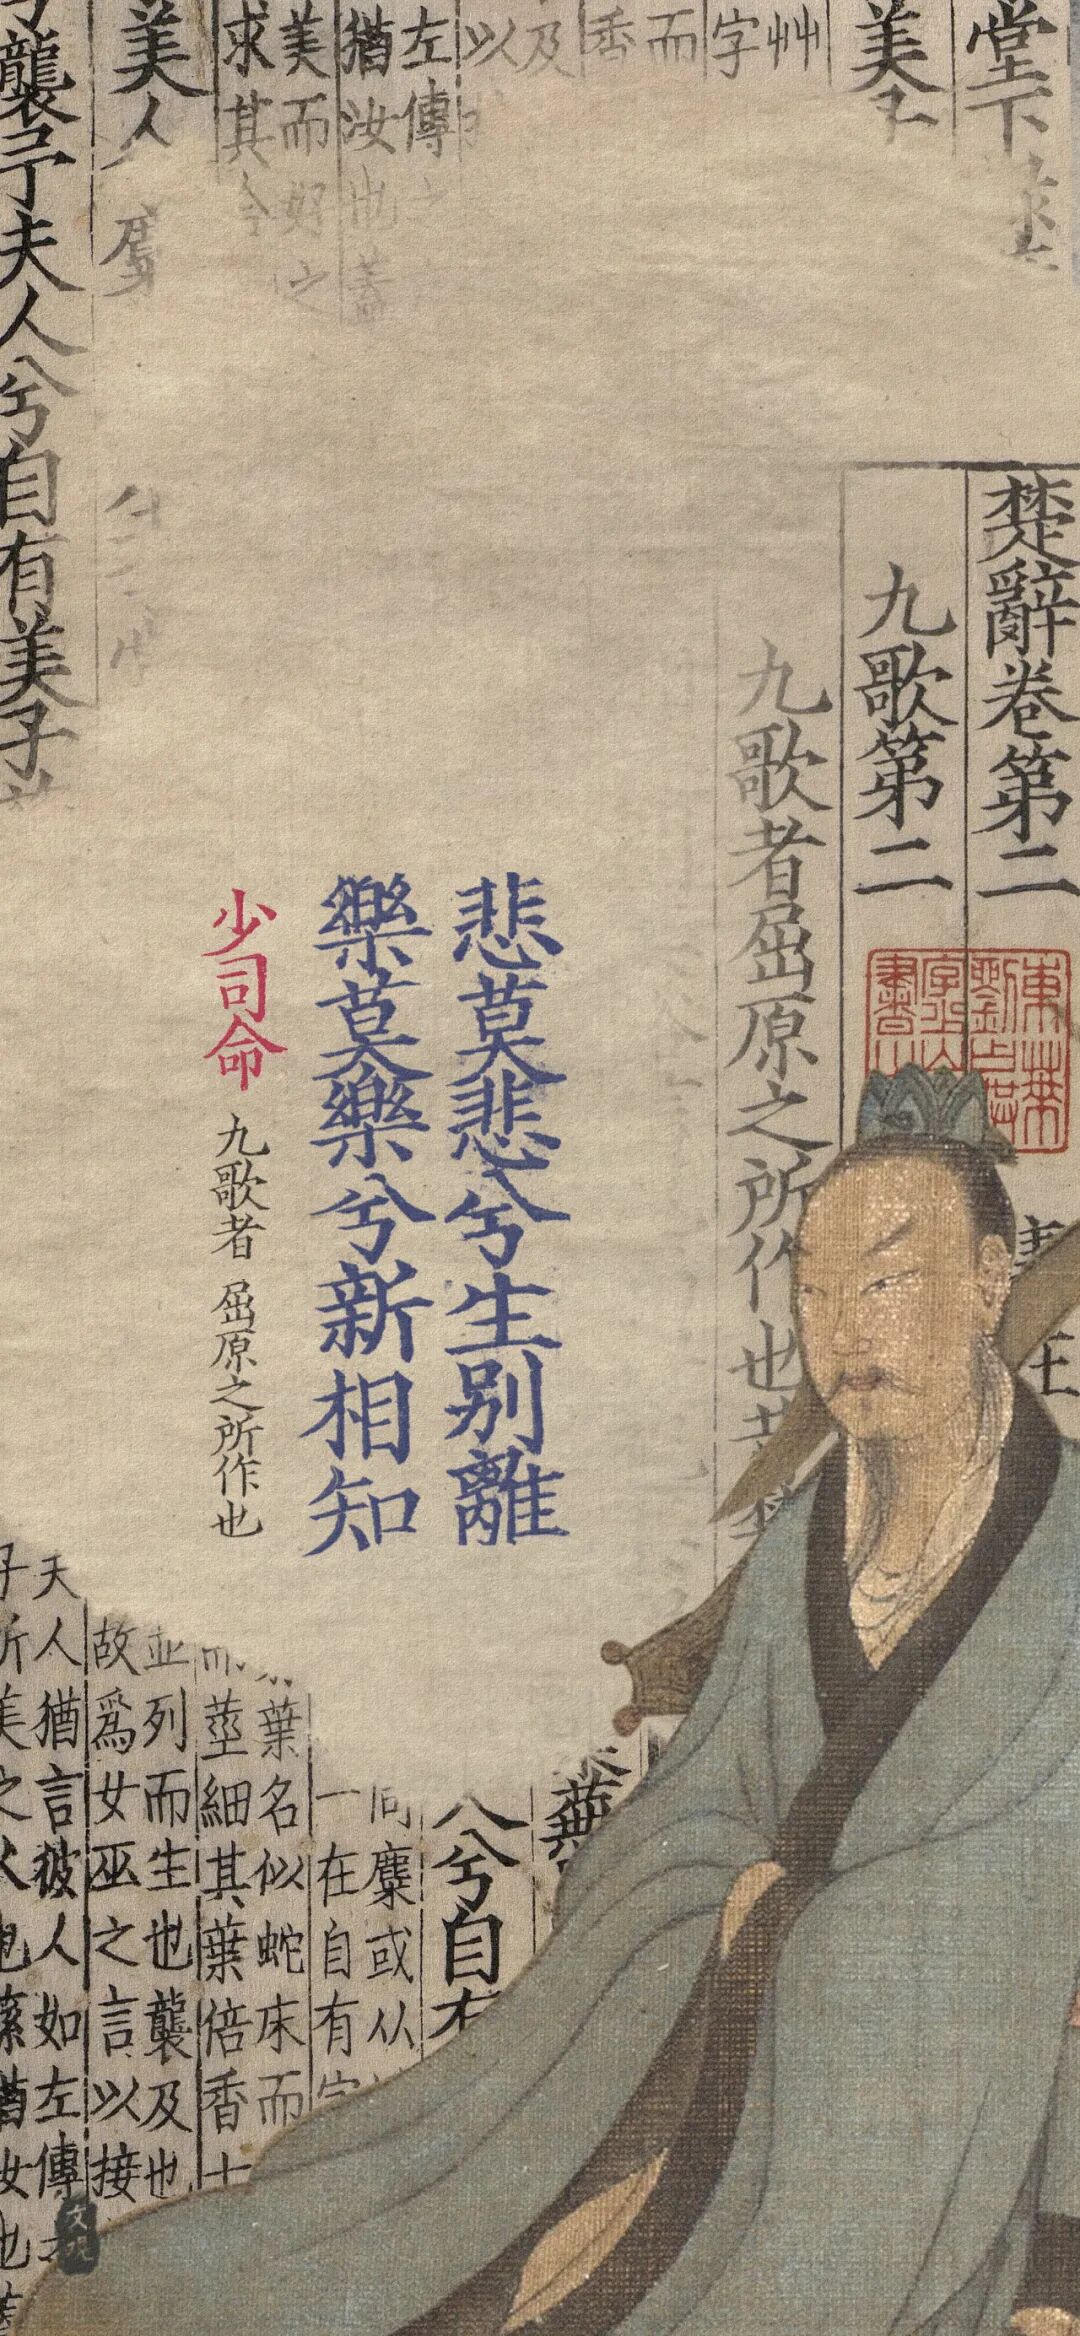 堂下
美子
艸
字
而
香
及
以
左傳
猶汝也蓋
美而好之
求其令
美人
襲予夫人兮自有美子
楚辭卷第二
九歌第二
九歌者屈原之所作也昔
悲莫悲兮生别離
樂莫樂兮新相知
少司命
九歌者 屈原之所作也
蘼
兮自有
同麋或从
一在自有字
葉名似蛇床而
莖細其葉倍香
並列而生也襲及也
故爲女巫之言以接
夫人猶言彼人如左傳
子所美之人也蓀猶汝也蓋